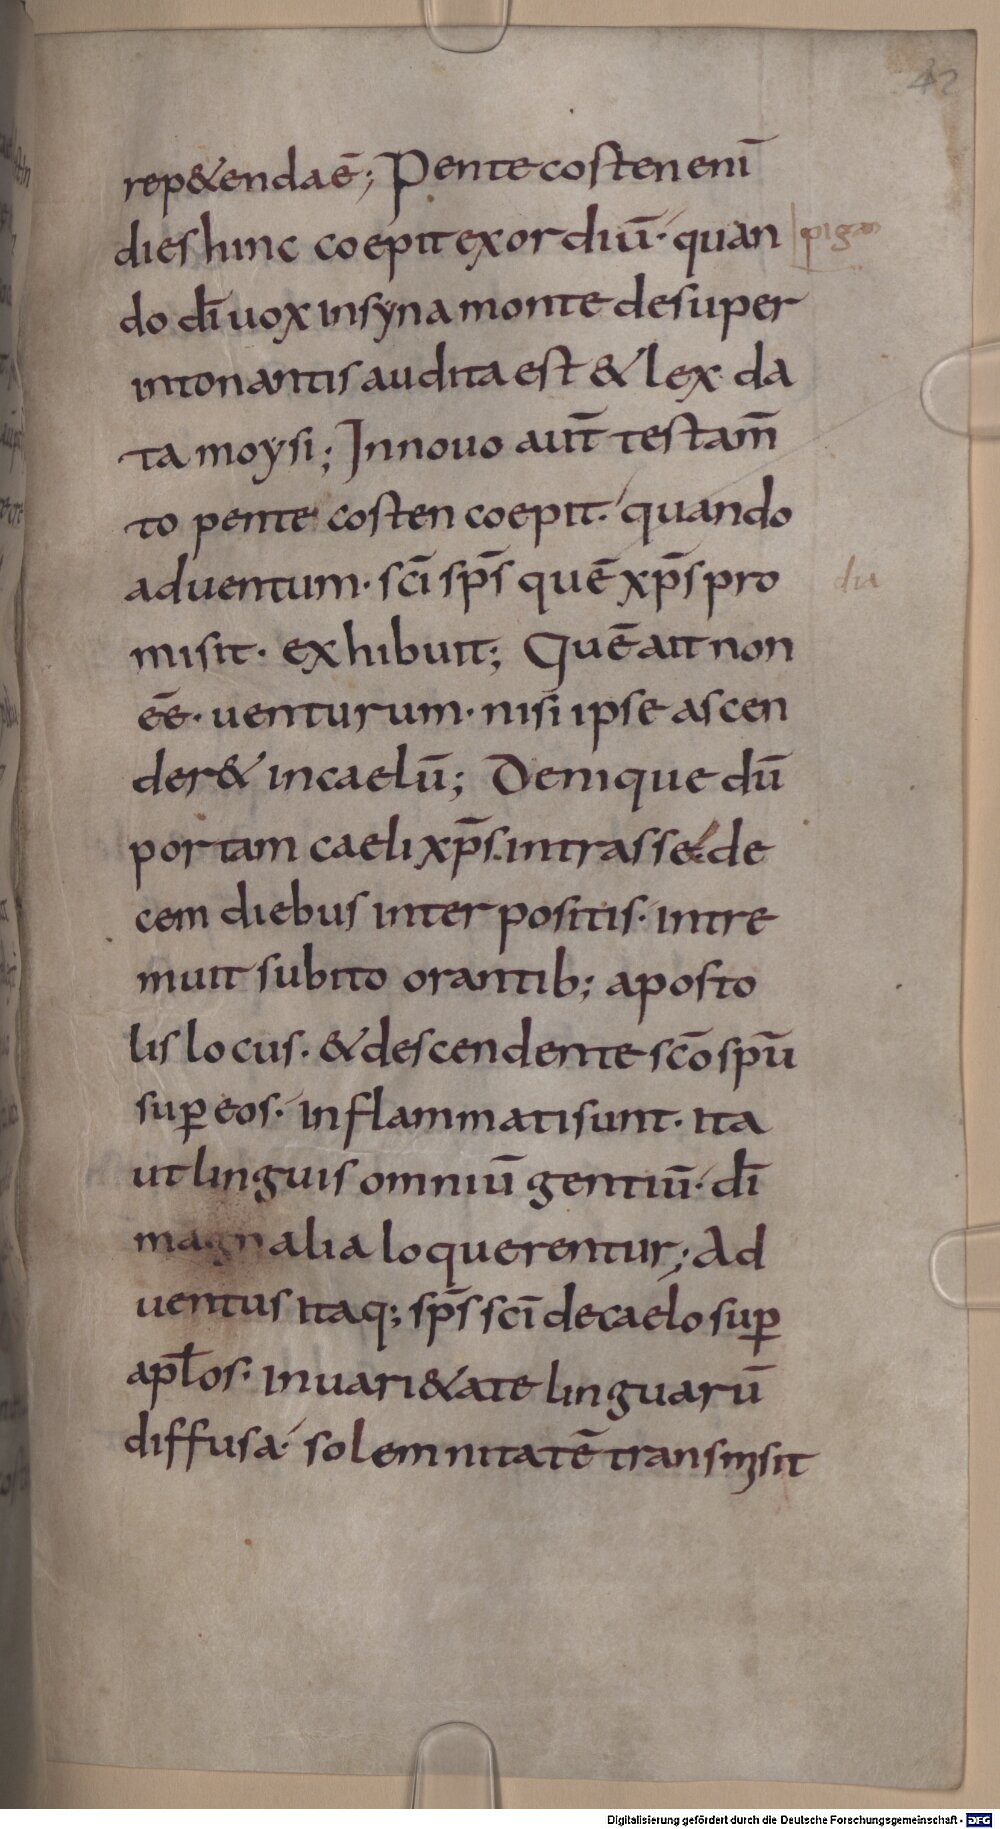 42
rep&endaē; Pentecosten enī
dies hinc coepit exordiū· quan
do dī uox in syna monte desuper
intonantis audita est & lex da
ta moysi; In nouo aut̄ testam̄
to pentecosten coepit· quando
aduentum· scī sp̄s quē xp̄s pro
misit· exhibuit; Quē ait non
ēē· uenturum· nisi ipse ascen
der& in caelū; Denique dū
portam caeli xp̄s· intrasse· de
cem diebus interpositis· intre
muit subito orantib; aposto
lis locus· & descendente scō spū
suꝑ eos· inflammati sunt· ita
ut linguis omniū gentiū· dī
magnalia loquerentur; Ad
uentus itaq; sp̄s scī de caelo suꝑ
apl̄os· in uari&ate linguarū
diffusa· solemnitatē transmisit
Digitalisierung gefördert durch die Deutsche Forschungsgemeinschaft - DFG